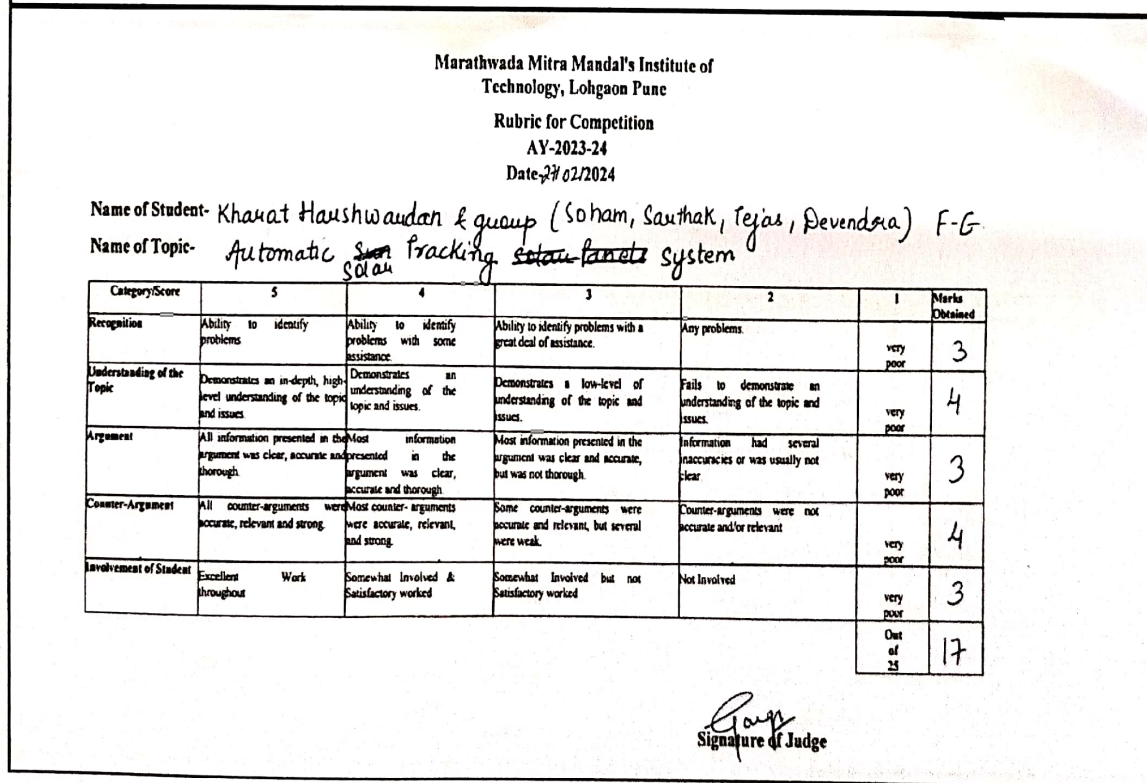 Marathwada Mitra Mandal's Institute of
Technology, Lohgaon Pune
Rubric for Competition
AY-2023-24
Date-27/02/2024
Name of Student- Kharat Harshwardan & group (Soham, Sarthak, Tejas, Devendra) F-G
Name of Topic- Automatic Sun solar Tracking solar Panels system
Category/Score 5 4 3 2 1 Marks Obtained
Recognition Ability to identify problems Ability to identify problems with some assistance. Ability to identify problems with a great deal of assistance. Any problems. very poor 3
Understanding of the Topic Demonstrates an in-depth, high-level understanding of the topic and issues. Demonstrates an understanding of the topic and issues. Demonstrates a low-level of understanding of the topic and issues. Fails to demonstrate an understanding of the topic and issues. very poor 4
Argument All information presented in the argument was clear, accurate and thorough. Most information presented in the argument was clear, accurate and thorough. Most information presented in the argument was clear and accurate, but was not thorough. Information had several inaccuracies or was usually not clear. very poor 3
Counter-Argument All counter-arguments were accurate, relevant and strong. Most counter- arguments were accurate, relevant, and strong. Some counter-arguments were accurate and relevant, but several were weak. Counter-arguments were not accurate and/or relevant very poor 4
Involvement of Student Excellent Work throughout Somewhat Involved & Satisfactory worked Somewhat Involved but not Satisfactory worked Not Involved very poor 3
Out of 25 17
Signature of Judge